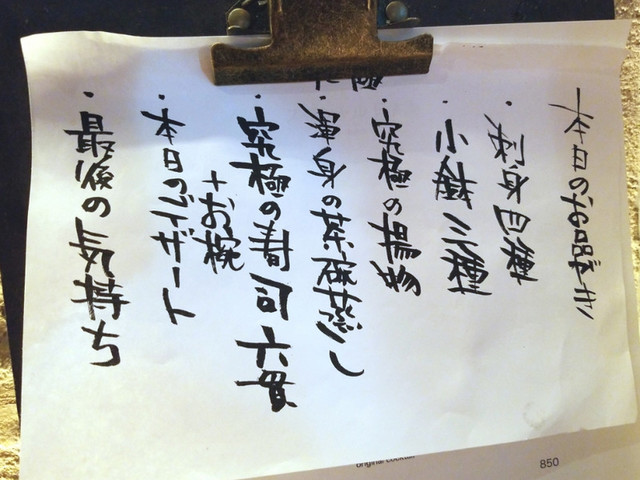 本日のお品がき
・刺身四種
・小鉢三種
究極の揚物
・渾身の茶碗蒸し
・究極の寿司六貫
+お椀
・本日のデザート
・最後の気持ち
original cocktail
850